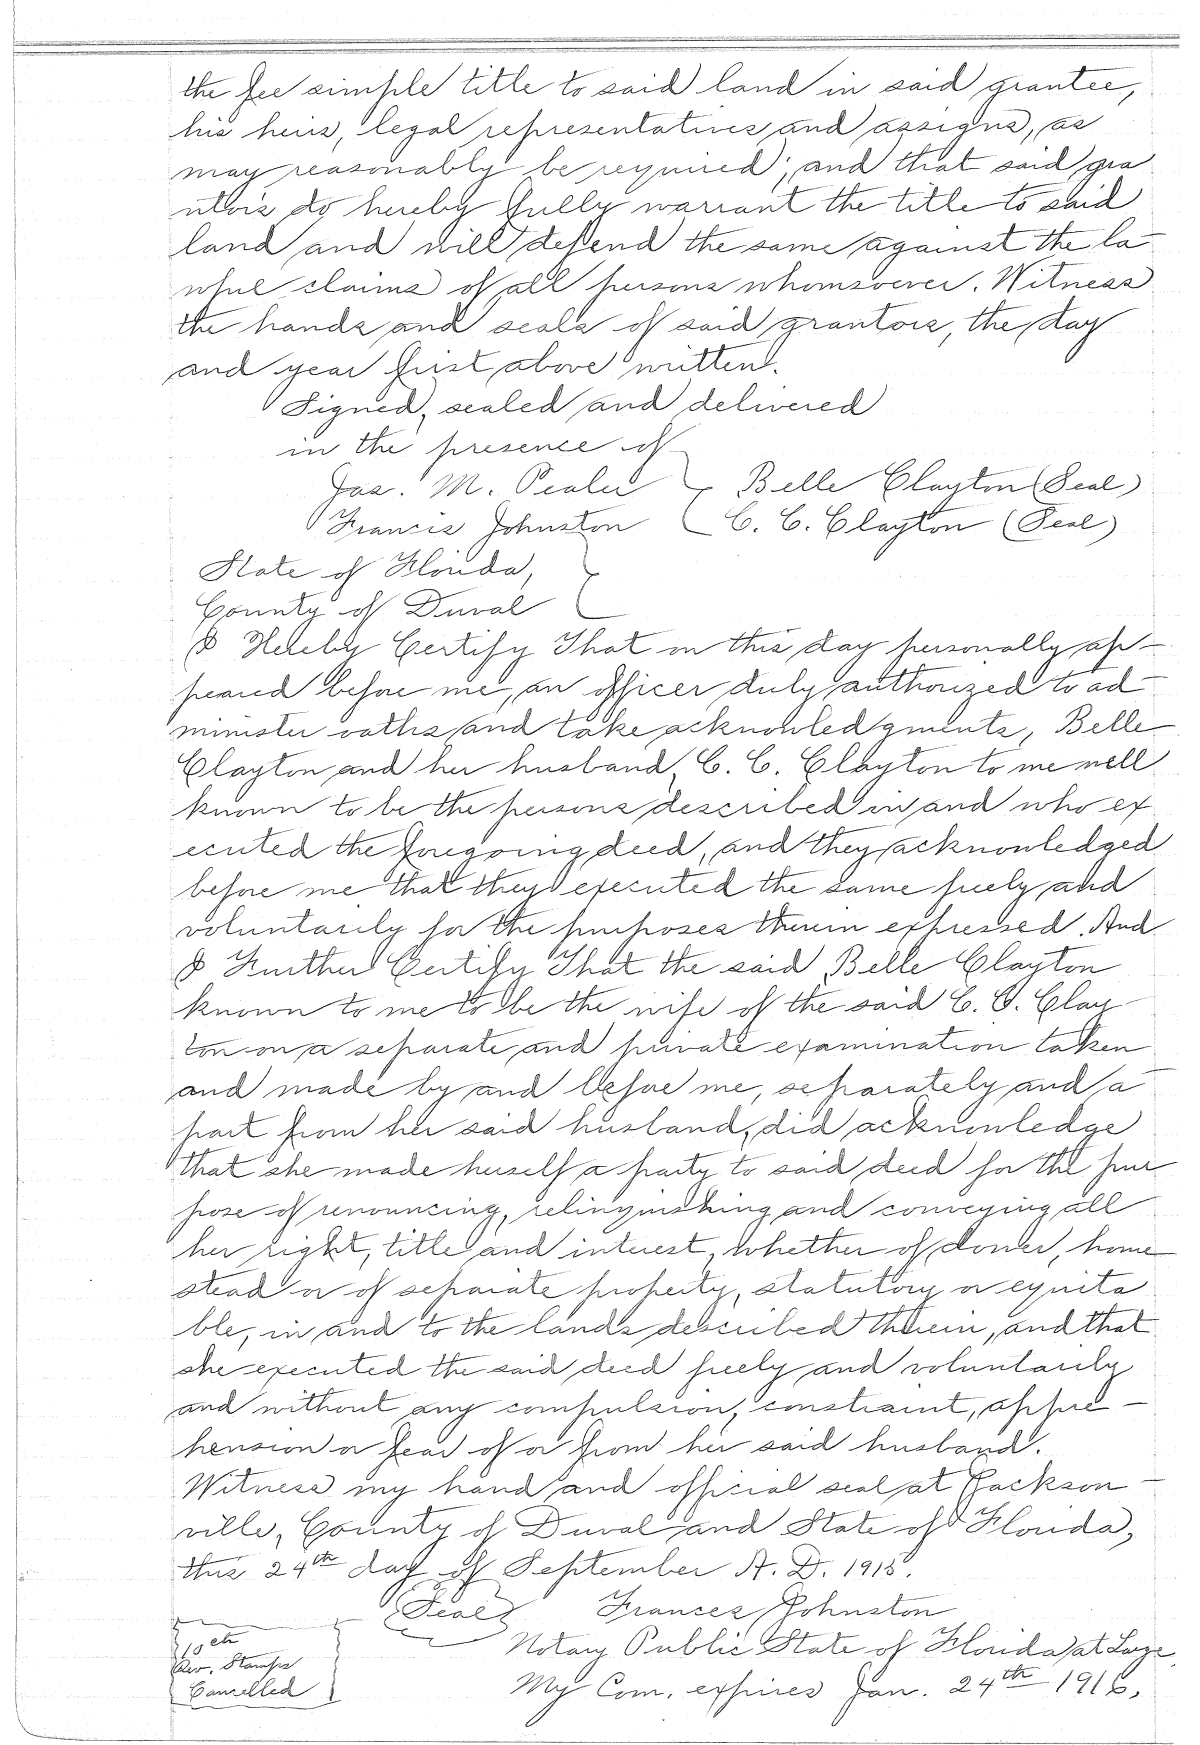 the fee simple title to said land in said grantee,
his heirs, legal representatives and assigns, as
may reasonably be required; and that said gra
ntors do hereby fully warrant the title to said
land and will defend the same against the la-
wful claims of all persons whomsoever. Witness
the hands and seals of said grantors, the day
and year first above written.
Signed, sealed and delivered
in the presence of
Jas. M. Pealer Belle Clayton (Seal)
Francis Johnston C. C. Clayton (Seal)
State of Florida,
County of Duval
I Hereby Certify That on this day personally ap-
peared before me, an officer duly authorized to ad-
minister oaths and take acknowledgments, Belle
Clayton and her husband, C. C. Clayton to me well
known to be the persons described in and who ex
ecuted the foregoing deed, and they acknowledged
before me that they executed the same freely and
voluntarily for the purposes therein expressed. And
I Further Certify That the said Belle Clayton
known to me to be the wife of the said C. C. Clay-
ton on a separate and private examination taken
and made by and before me, separately and a-
part from her said husband, did acknowledge
that she made herself a party to said deed for the pur
pose of renouncing, relinquishing and conveying all
her right, title and interest, whether of dower, home-
stead or of separate property, statutory or equita
ble, in and to the lands described therein, and that
she executed the said deed freely and voluntarily
and without any compulsion, constraint, appre-
hension or fear of or from her said husband.
Witness my hand and official seal at Jackson-
ville, County of Duval and State of Florida,
this 24th day of September A. D. 1915.
(Seal) Frances Johnston
Notary Public State of Florida at Large,
My Com. expires Jan. 24th 1916.
Rev. Stamps
Cancelled